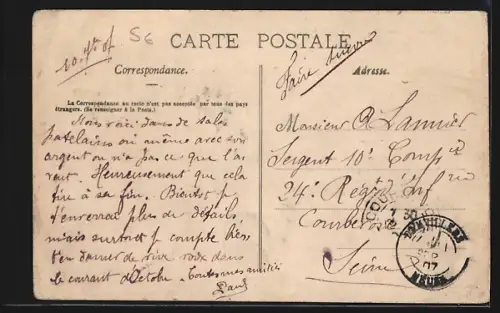 10 7bre 07
56
CARTE POSTALE
faire suivre
Correspondance.
Adresse.
La Correspondance au recto n'est pas acceptée par tous des pays
étrangers. (Se renseigner à la Poste.)
Nous voici dans de sales
patelains où même avec son
argent on n'a pas ce que l'on
veut. Heureusement que cela
tire à sa fin. Bientôt je
t'enverrai plus de détails
mais surtout je compte bien
t'en donner de vive voix dans
le courant d'Octobre. Toutes mes amitiés
Paul
Monsieur Lannier
Sergent 10e Compie
24e Régt d'Infrie
Courbevoie
Seine
7 30
07